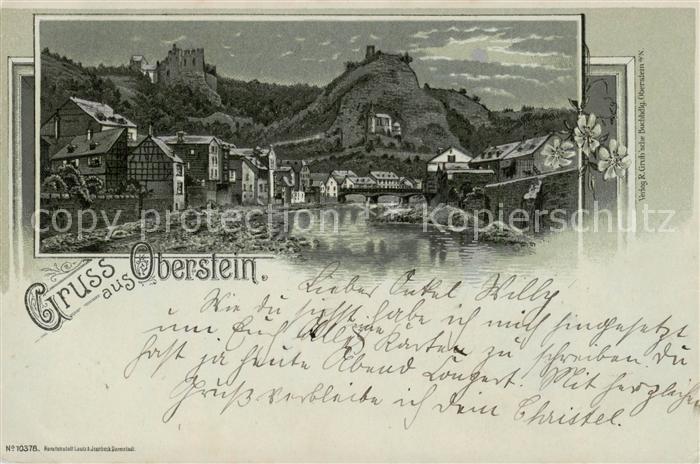 Gruss aus Oberstein.
Verlag R. Grub'sche Buchhdlg. Oberstein a/N.
copy protection - Kopierschutz
Lieber Onkel Willy
Wie du siehst habe ich mich hingesetzt
um Euch Alle eine Karten zu schreiben du
hast ja heute Abend Conzert. Mit herzlichen
Gruß verbleibe ich dein Christel.
No 10378. Kunstanstalt Lautz & Isenbeck Darmstadt.